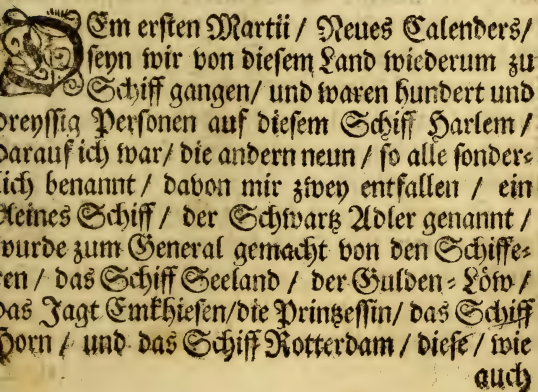 DEm ersten Martii / Neues Calenders/
seyn wir von diesem Land wiederum zu
Schiff gangen/ und waren hundert und
dreyssig Personen auf diesem Schiff Harlem /
darauf ich war/ die andern neun / so alle sonder⸗
lich benannt / davon mir zwey entfallen / ein
kleines Schiff / der Schwartz Adler genannt /
wurde zum General gemacht von den Schiffe⸗
ren / das Schiff Seeland / der Gulden⸗Löw /
das Jagt Emkhiesen/die Printzessin/ das Schiff
Horn / und das Schiff Rotterdam / diese / wie
auch